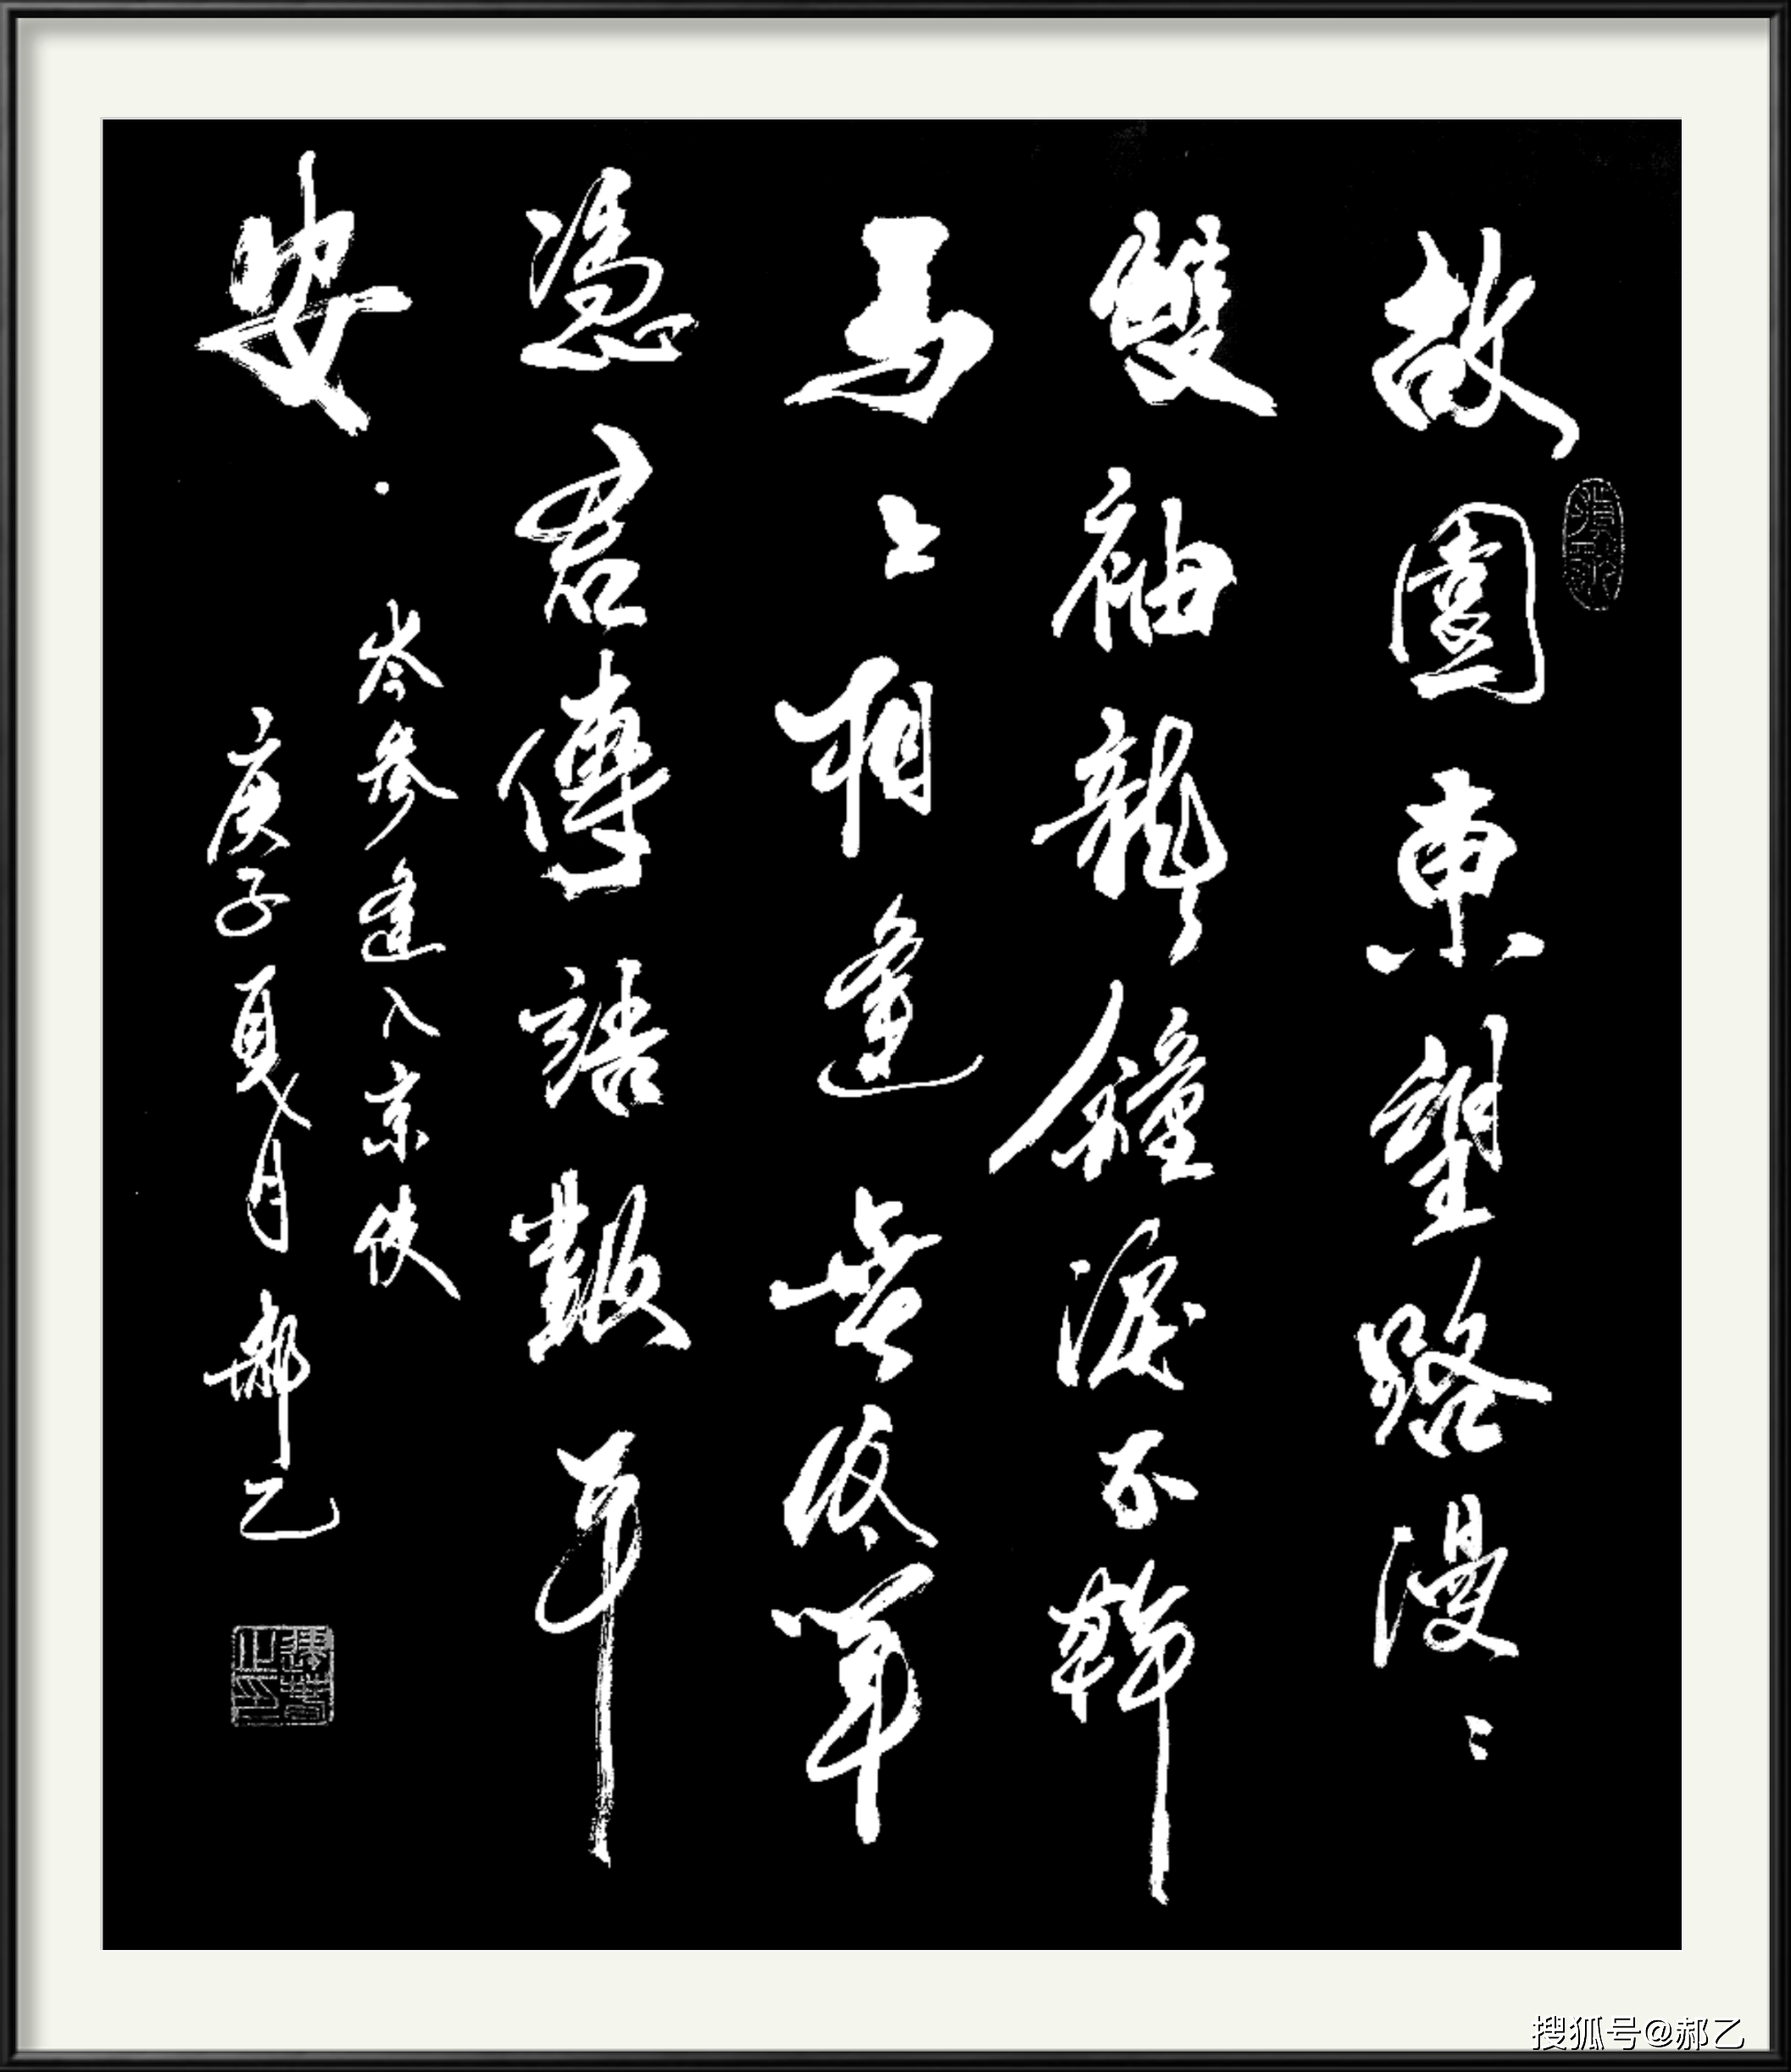 故園東望路漫〻
雙袖龍鐘淚不幹
馬上相逢無紙筆
憑君傳語報平
安
岑參逢入京使
庚子夏月郝乙
搜狐号@郝乙